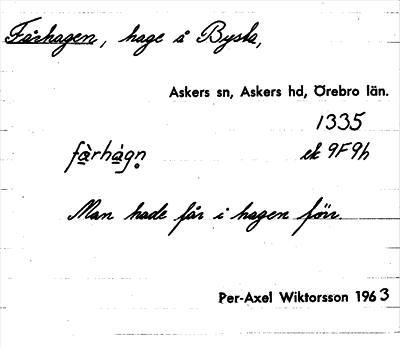 Fårhagen, hage å Bysta,
Askers sn, Askers hd, Örebro län.
1335
fàrhàgn̥ ek 9F9h
Man hade får i hagen förr.
Per-Axel Wiktorsson 1963